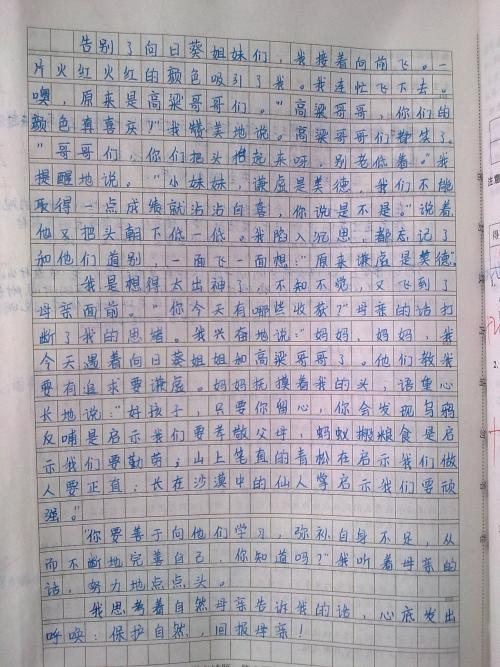 告别了向日葵姐妹们，我接着向前飞。一
片火红火红的颜色吸引了我。我连忙飞下去。
噢，原来是高粱哥哥们。“高粱哥哥，你们的
颜色真喜庆？”我赞美地说。高粱哥哥们都笑了。
“哥哥们，你们把头抬起来呀，别老低着。”我
提醒地说。“小妹妹，谦虚是美德，我们不能
取得一点成绩就沾沾自喜，你说是不是。”说着，
他又把头朝下低一低。我陷入沉思，都忘记了
和他们道别，一面飞一面想：“原来谦虚是美德”。
我是想得太出神了，不知不觉，又飞到了
母亲面前。“你今天有哪些收获？”母亲的话打
断了我的思绪。我兴奋地说：“妈妈，妈妈，我
今天遇着向日葵姐姐和高粱哥哥了。他们教我
要有追求要谦虚。妈妈抚摸着我的头，语重心
长地说：“好孩子，只要你留心，你会发现乌鸦
反哺是启示我们要孝敬父母，蚂蚁搬粮食是启
示我们要勤劳；山上笔直的青松在启示我们做
人要正直；长在沙漠中的仙人掌启示我们要顽
强。”
“你要善于向他们学习，弥补自身不足，从
而不断地完善自己，你知道吗？”我听着母亲的
话，努力地点点头。
我思考着自然母亲告诉我的话，心底发出
呼唤：保护自然，回报母亲！
注意
得
1.
2.